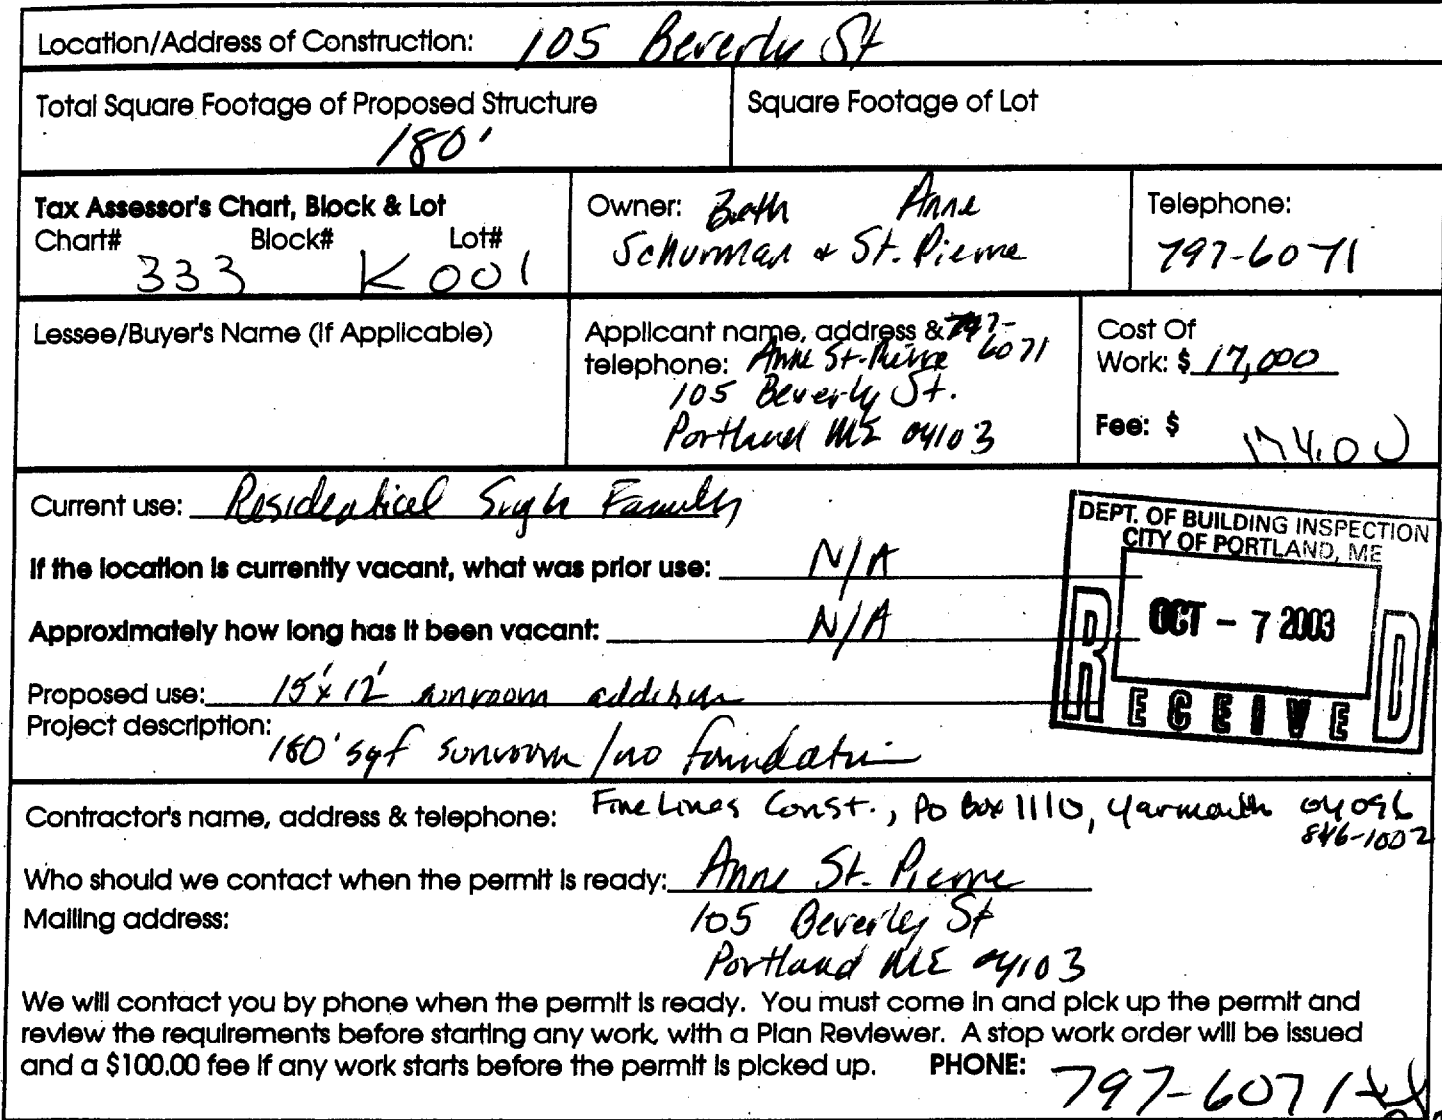 Location/Address of Construction: 105 Beverly St
Total Square Footage of Proposed Structure
180'
Square Footage of Lot
Tax Assessor's Chart, Block & Lot
Chart# Block# Lot#
333 K 001
Owner: Beth Anne
Schurman & St. Pierre
Telephone:
797-6071
Lessee/Buyer's Name (If Applicable)
Applicant name, address & 797-
telephone: Anne St. Pierre 6071
105 Beverly St.
Portland ME 04103
Cost Of
Work: $ 17,000
Fee: $ 174.00
Current use: Residential Single Family
If the location is currently vacant, what was prior use: N/A
Approximately how long has it been vacant: N/A
Proposed use: 15'x12' sunroom addition
Project description:
180' sqf sunroom / no foundation
DEPT. OF BUILDING INSPECTION
CITY OF PORTLAND, ME
OCT - 7 2003
RECEIVED
Contractor's name, address & telephone: Fine Lines Const., PO Box 1110, Yarmouth 04096
846-1002
Who should we contact when the permit is ready: Anne St. Pierre
Mailing address: 105 Beverly St
Portland ME 04103
We will contact you by phone when the permit is ready. You must come in and pick up the permit and
review the requirements before starting any work, with a Plan Reviewer. A stop work order will be issued
and a $100.00 fee if any work starts before the permit is picked up. PHONE: 797-6071